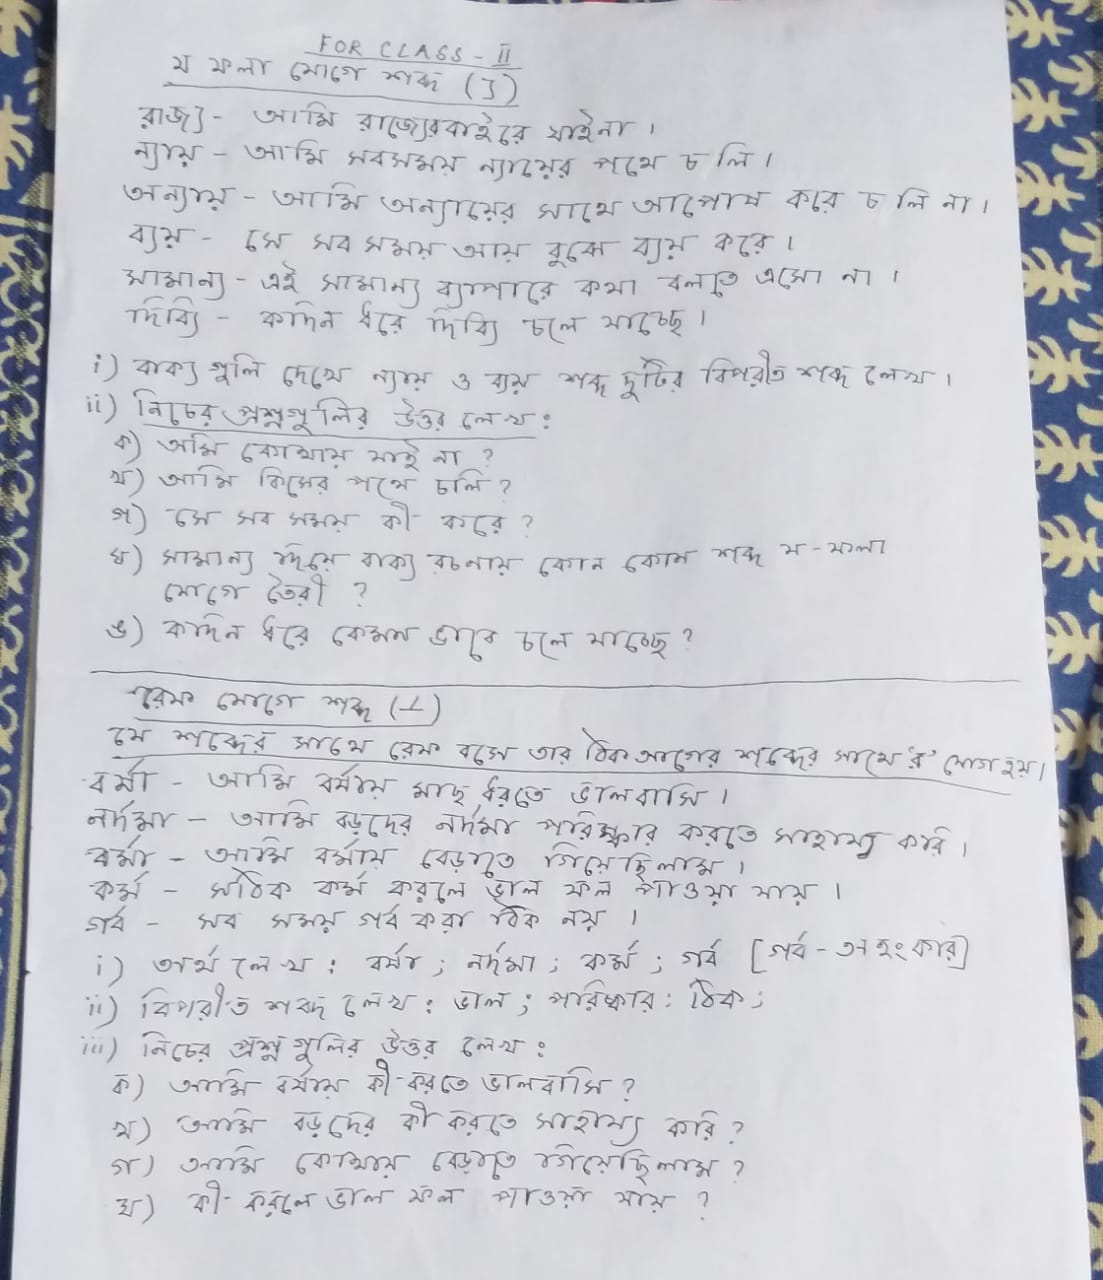 FOR CLASS - II
য ফলা যোগে শব্দ (্য)
রাজ্য - আমি রাজ্যেরবাইরে যাইনা।
ন্যায় - আমি সবসময় ন্যায়ের পথে চলি।
অন্যায় - আমি অন্যায়ের সাথে আপোষ করে চলি না।
ব্যয় - সে সব সময় আয় বুঝে ব্যয় করে।
সামান্য - এই সামান্য ব্যাপারে কথা বলতে এসো না।
দিব্যি - কদিন ধরে দিব্যি চলে যাচ্ছে।
i) বাক্য গুলি দেখে ন্যায় ও ব্যয় শব্দ দুটির বিপরীত শব্দ লেখ।
ii) নিচের প্রশ্নগুলির উত্তর লেখ:
ক) আমি কোথায় যাই না?
খ) আমি কিসের পথে চলি?
গ) সে সব সময় কী করে?
ঘ) সামান্য দিয়ে বাক্য রচনায় কোন কোন শব্দ য-ফলা
যোগে তৈরী?
ঙ) কদিন ধরে কেমন ভাবে চলে যাচ্ছে?
রেফ যোগে শব্দ (র্)
যে শব্দের সাথে রেফ বসে তার ঠিক আগের শব্দের সাথে 'র' যোগ হয়।
বর্ষা - আমি বর্ষায় মাছ ধরতে ভালবাসি।
নর্দমা - আমি বড়দের নর্দমা পরিষ্কার করতে সাহায্য করি।
বর্মা - আমি বর্মায় বেড়াতে গিয়েছিলাম।
কর্ম - সঠিক কর্ম করলে ভাল ফল পাওয়া যায়।
গর্ব - সব সময় গর্ব করা ঠিক নয়।
i) অর্থ লেখ: বর্ষা; নর্দমা; কর্ম; গর্ব [গর্ব - অহংকার]
ii) বিপরীত শব্দ লেখ: ভাল; পরিষ্কার; ঠিক;
iii) নিচের প্রশ্নগুলির উত্তর লেখ:
ক) আমি বর্ষায় কী করতে ভালবাসি?
খ) আমি বড়দের কী করতে সাহায্য করি?
গ) আমি কোথায় বেড়াতে গিয়েছিলাম?
ঘ) কী করলে ভাল ফল পাওয়া যায়?